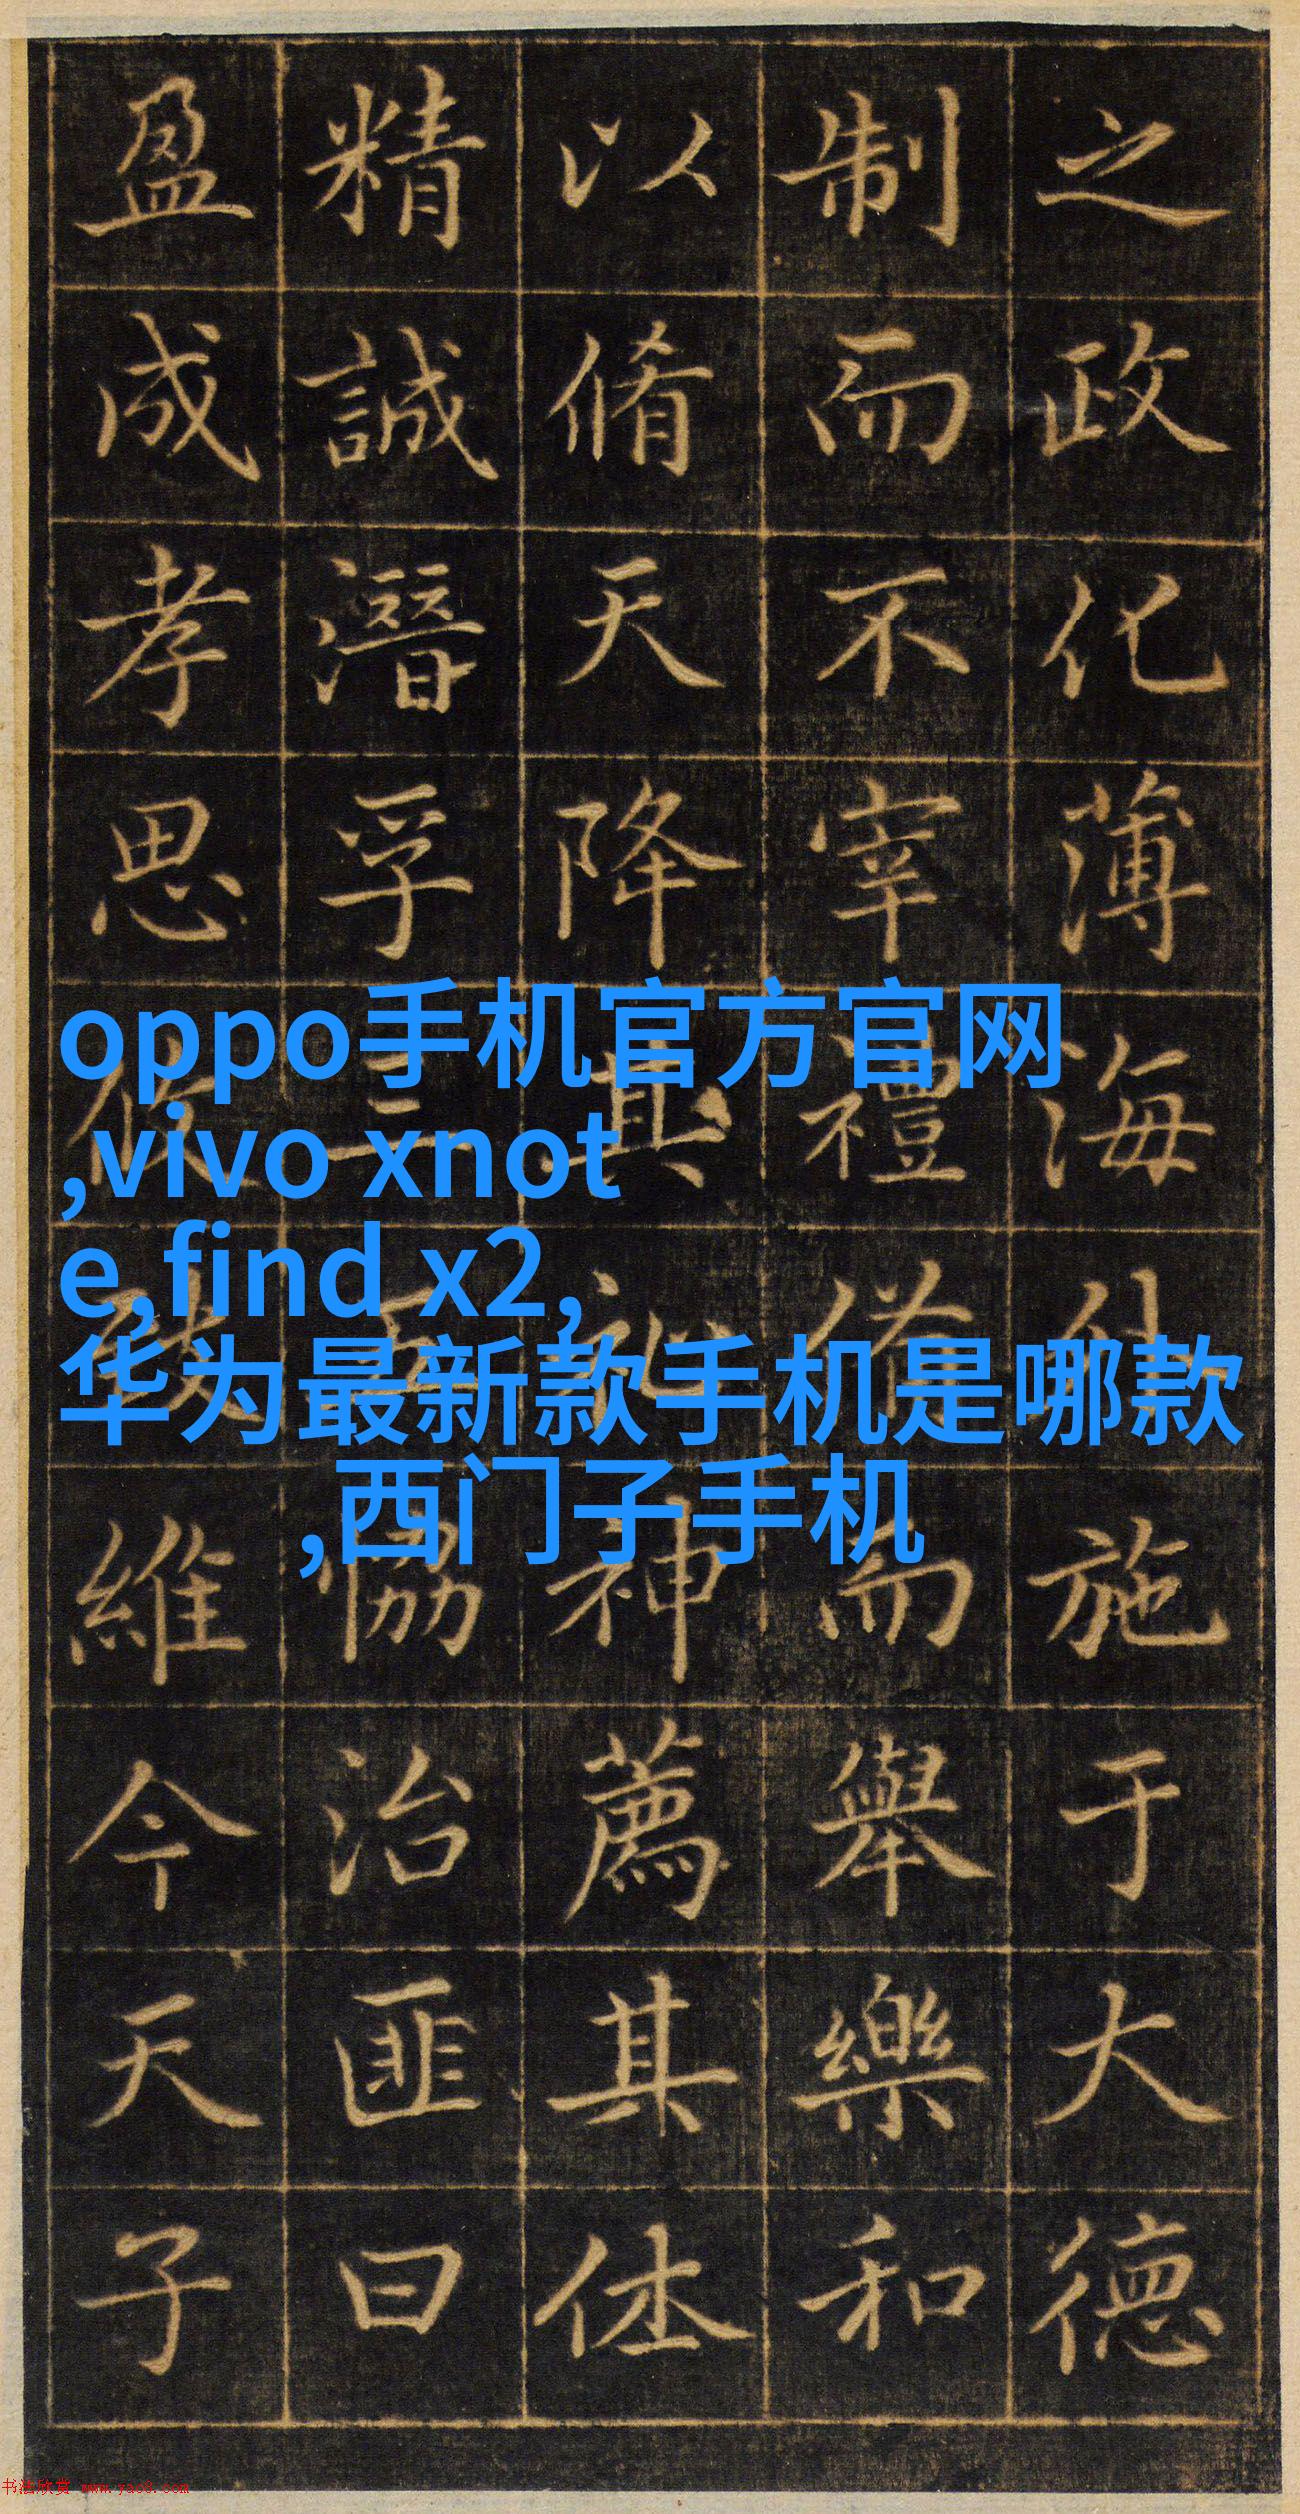 之政化薄海仕施于大德
制而不宰禮俗而舉樂和
以脩天降其祀神薦其休
精誠潛孚三 恊治匪曰
盈成孝思 維今天子
oppo手机官方官网
,vivo xnot
e,find x2,
华为最新款手机是哪款
,西门子手机
书法欣赏 www.yac8.com